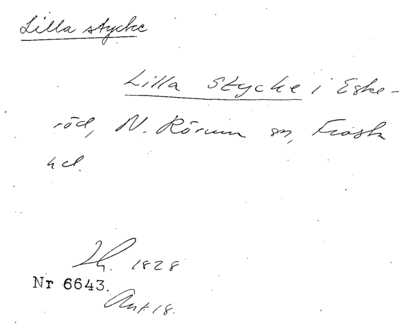 Lilla stycke
Lilla Stycke i Eske-
röd, N. Rörum sn, Frosta
hd.
1828
Nr 6643.
Ant 18.